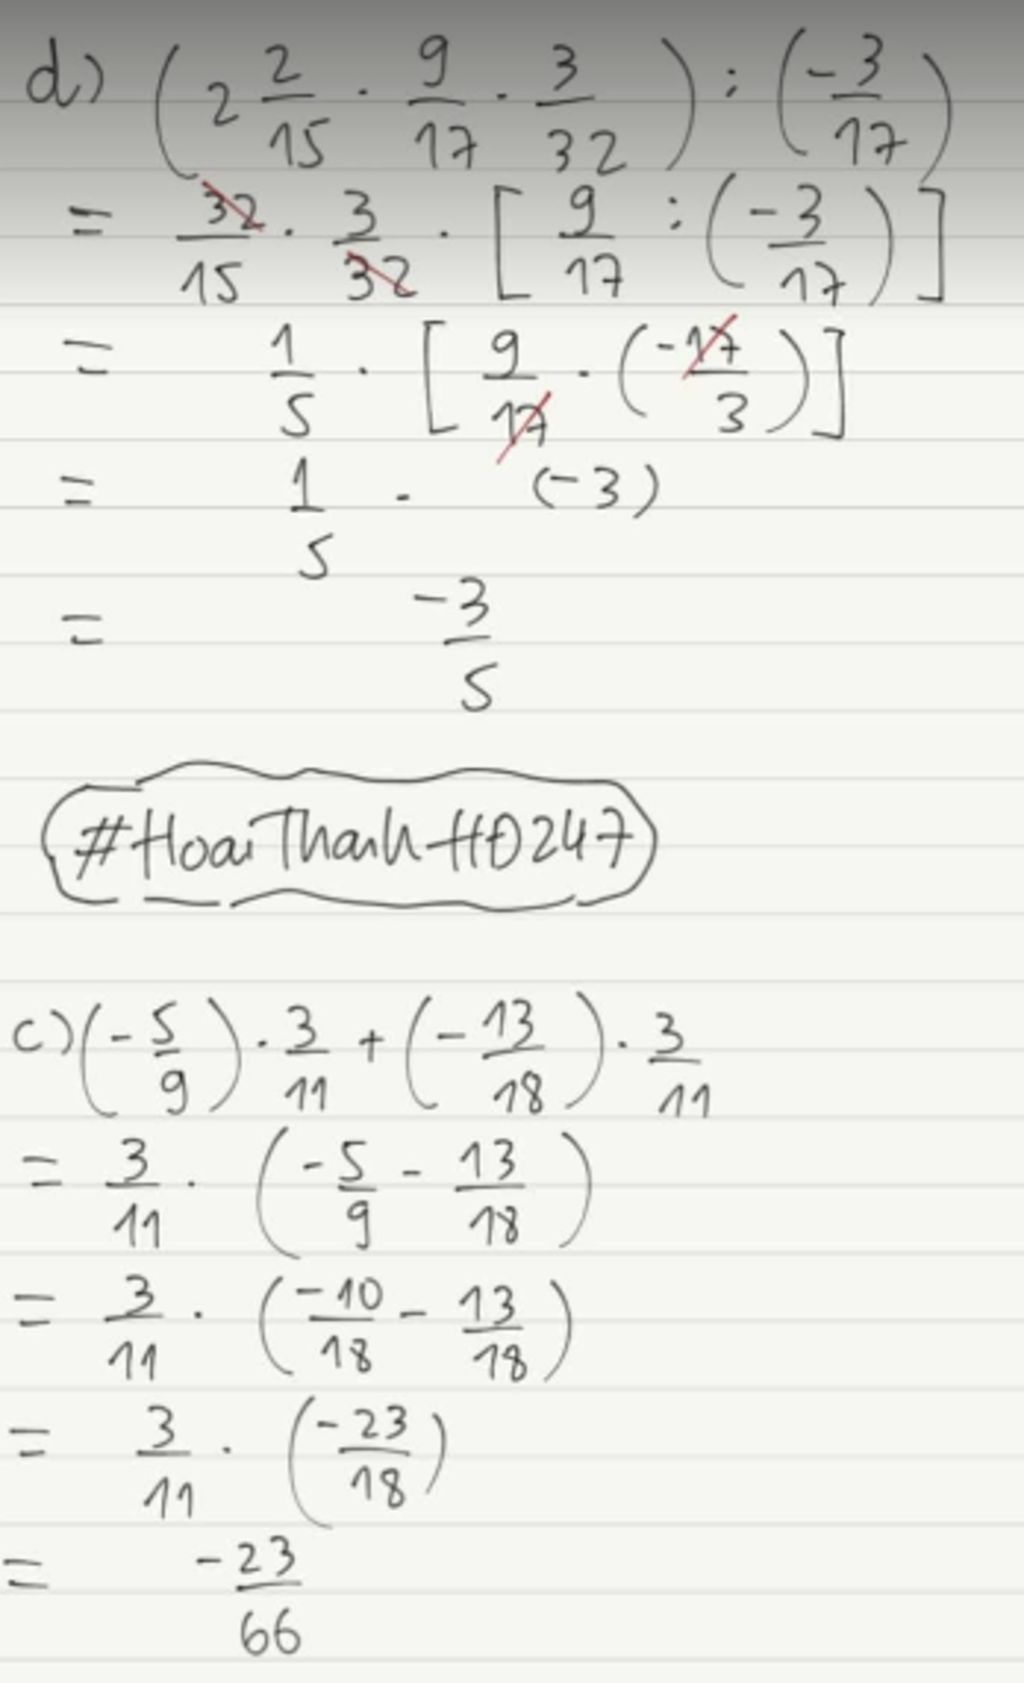 d) (2 2/15 . 9/17 . 3/32) : (-3/17)
= 32/15 . 3/32 . [9/17 : (-3/17)]
= 1/5 . [9/17 . (-17/3)]
= 1/5 . (-3)
= -3/5
#HoaiThanhHĐ247
c) (-5/9) . 3/11 + (-13/18) . 3/11
= 3/11 . (-5/9 - 13/18)
= 3/11 . (-10/18 - 13/18)
= 3/11 . (-23/18)
= -23/66